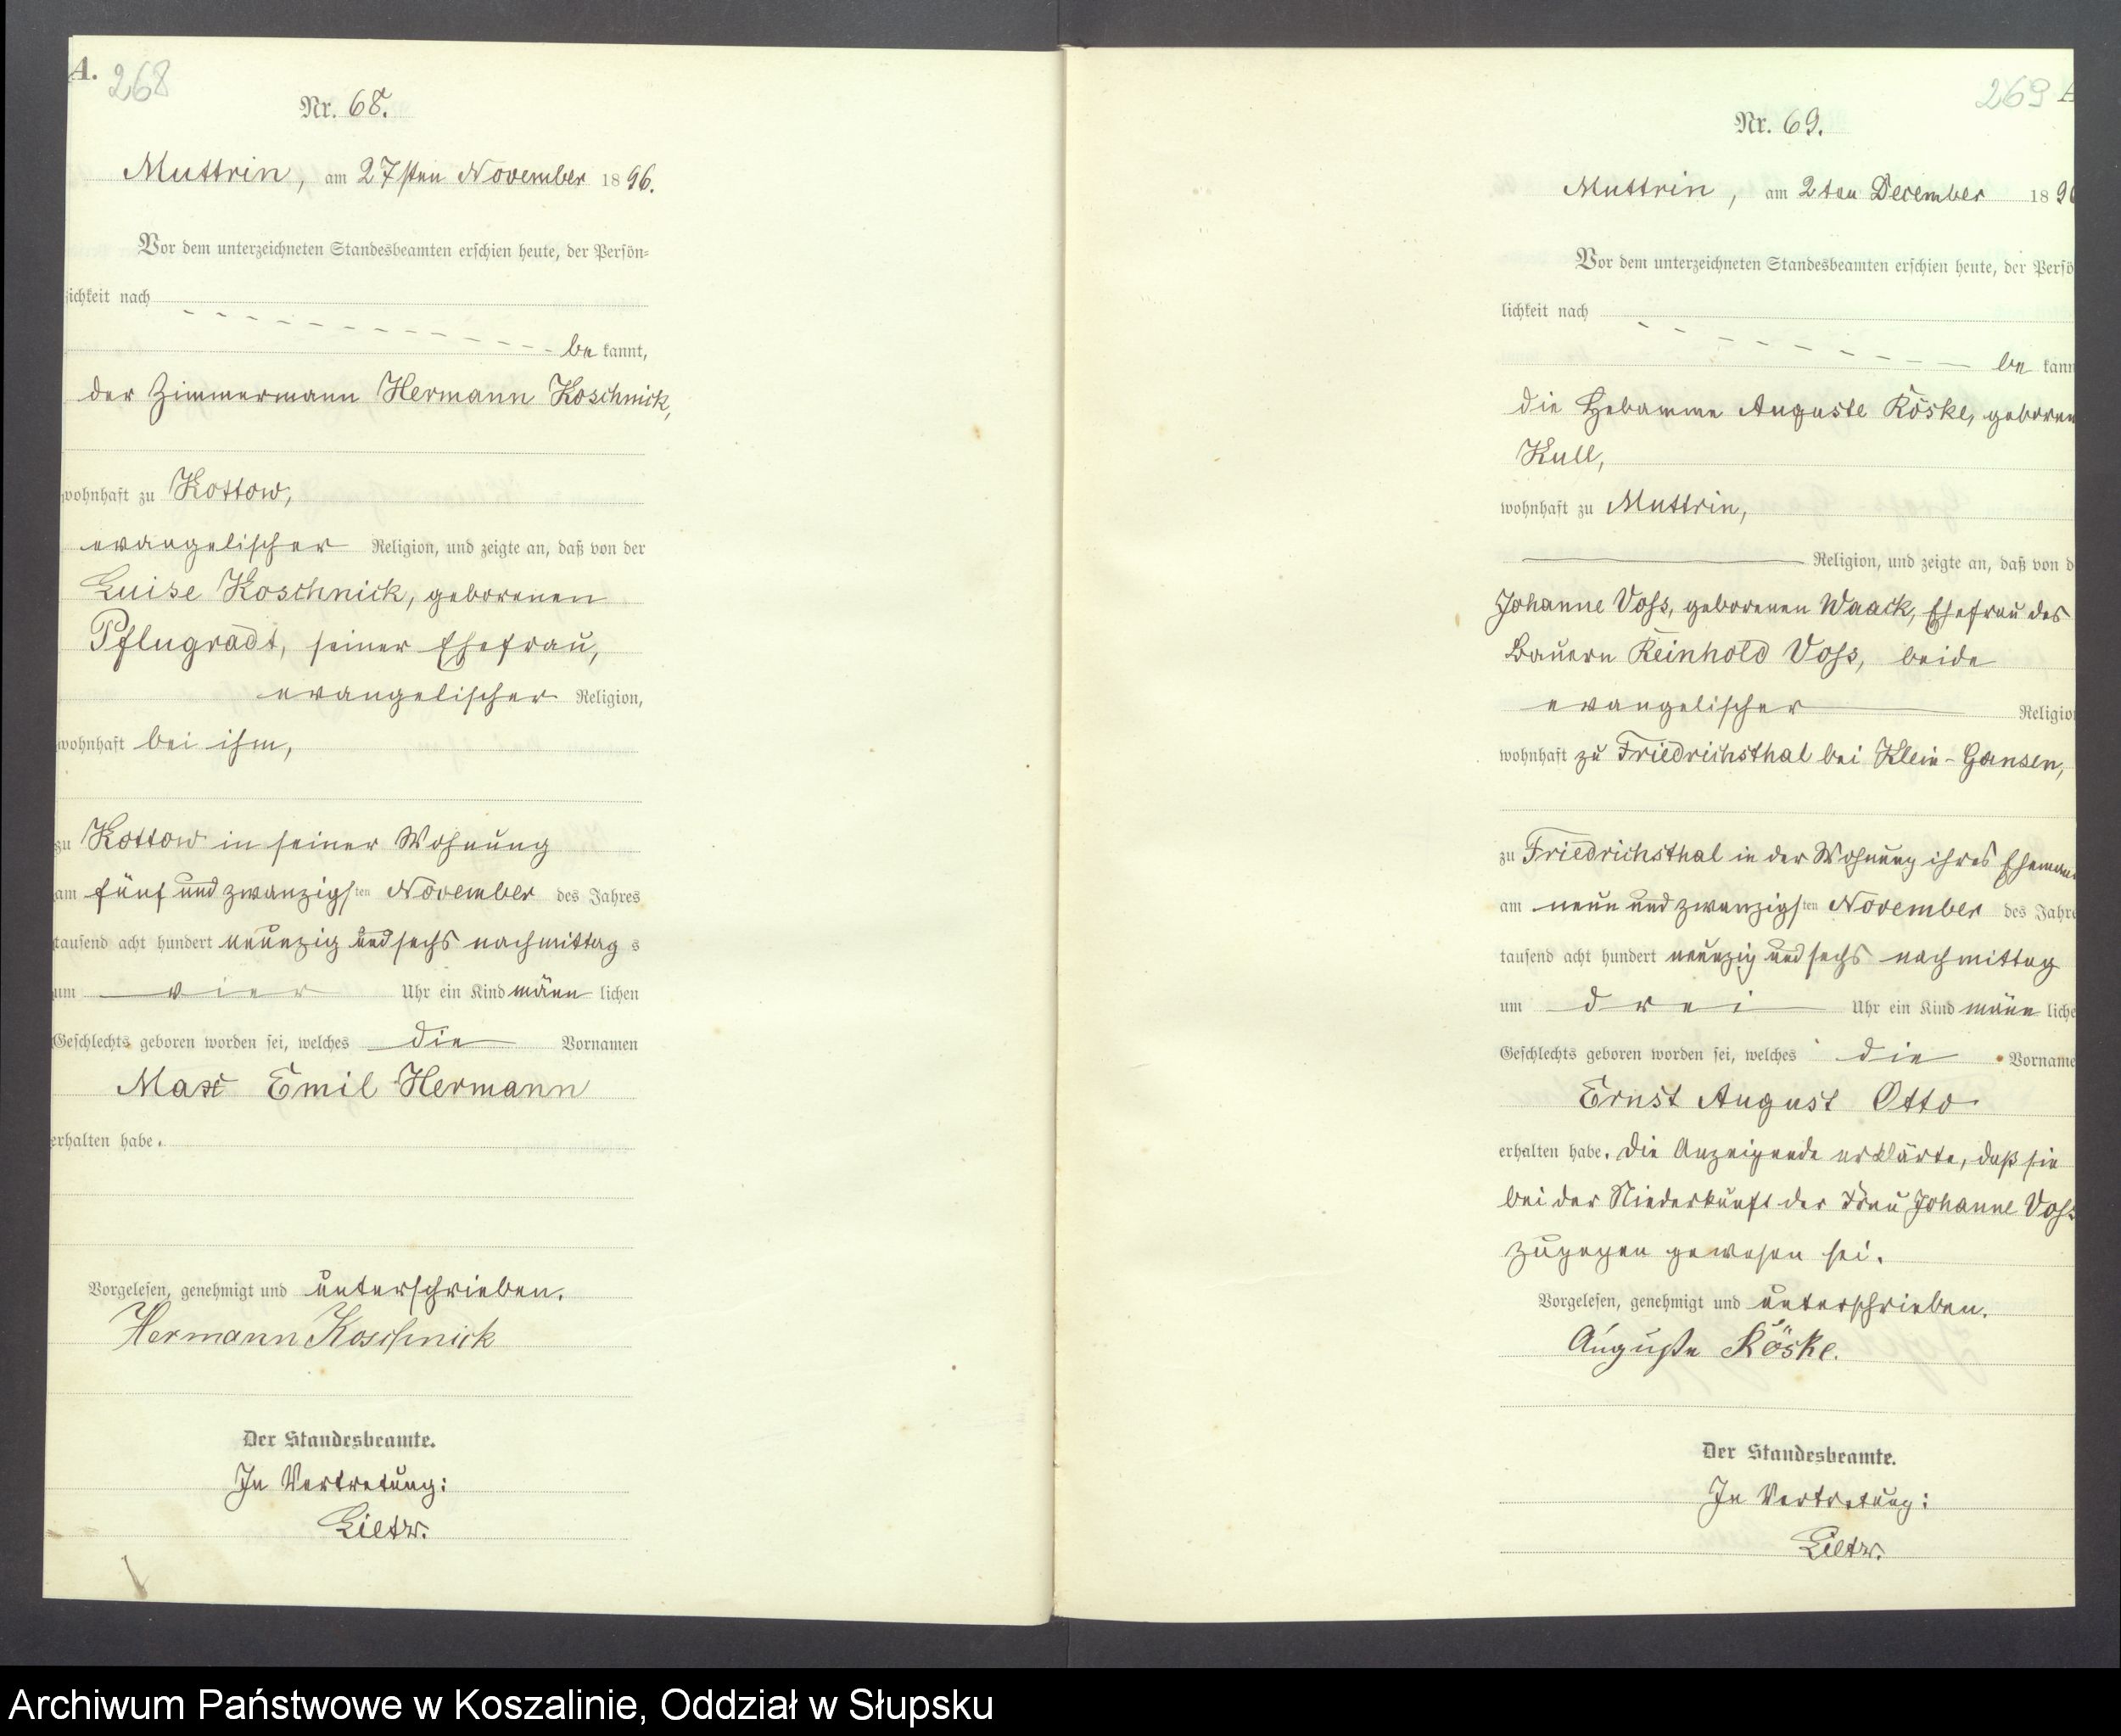 A.
268
Nr. 68.
Muttrin, am 27sten November 1896.
Vor dem unterzeichneten Standesbeamten erschien heute, der Persön-
lichkeit nach
be kannt,
der Zimmermann Hermann Koschnick,
wohnhaft zu Kottow,
evangelischer Religion, und zeigte an, daß von der
Luise Koschnick, geborenen
Pflugradt, seiner Ehefrau,
evangelischer Religion,
wohnhaft bei ihm,
zu Kottow in seiner Wohnung
am fünf und zwanzigsten November des Jahres
tausend acht hundert neunzig und sechs nachmittag s
um vier Uhr ein Kind männ lichen
Geschlechts geboren worden sei, welches die Vornamen
Max Emil Hermann
erhalten habe.
Vorgelesen, genehmigt und unterschrieben.
Hermann Koschnick
Der Standesbeamte.
In Vertretung:
269 A
Nr. 69.
Muttrin, am 2ten December 1896
Vor dem unterzeichneten Standesbeamten erschien heute, der Persö
lichkeit nach
be kann
die Hebamme Auguste Röske, geboren
Kull,
wohnhaft zu Muttrin,
Religion, und zeigte an, daß von d
Johanne Voss, geborenen Waack, Ehefrau des
Bauern Reinhold Voss, beide
evangelischer Religion
wohnhaft zu Friedrichsthal bei Klein-Gansen,
zu Friedrichsthal in der Wohnung ihres Eheman
am neun und zwanzigsten November des Jahre
tausend acht hundert neunzig und sechs nachmittag
um drei Uhr ein Kind männ liche
Geschlechts geboren worden sei, welches die Vorname
Ernst August Otto
erhalten habe. Die Anzeigende erklärte, daß sie
bei der Niederkunft der Frau Johanne Voss
zugegen gewesen sei.
Vorgelesen, genehmigt und unterschrieben.
Auguste Röske.
Der Standesbeamte.
In Vertretung:
Archiwum Państwowe w Koszalinie, Oddział w Słupsku